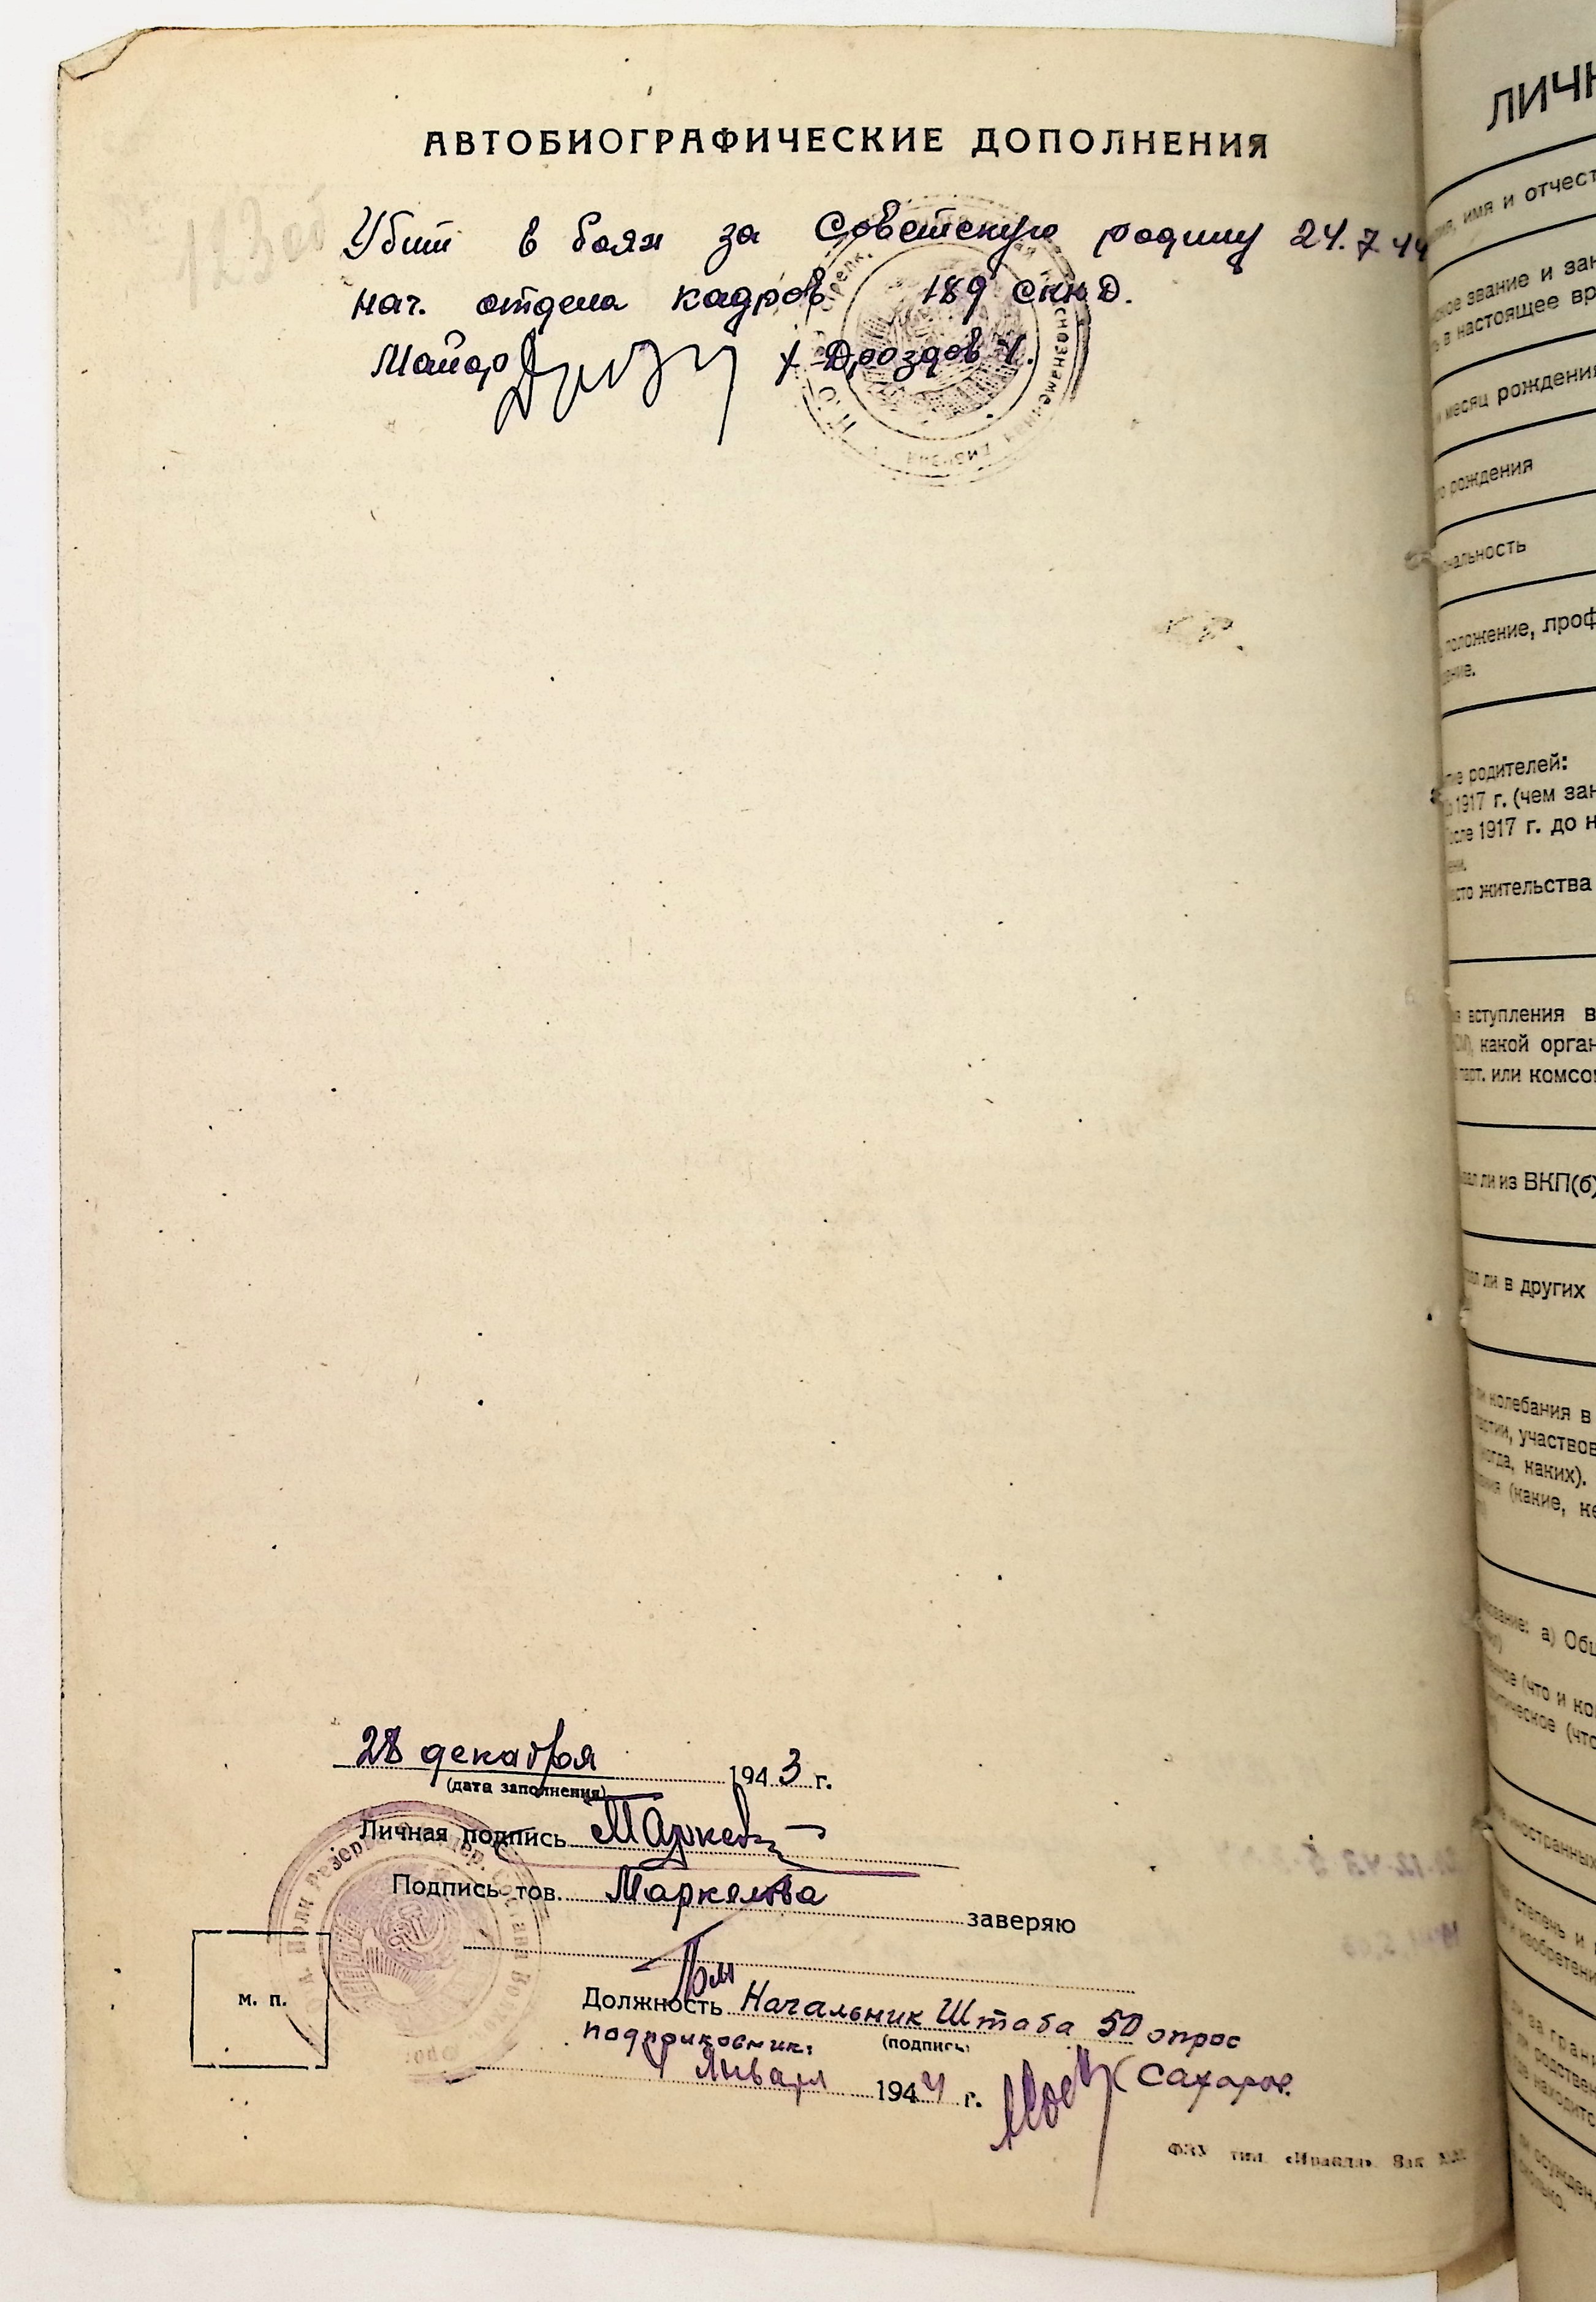 АВТОБИОГРАФИЧЕСКИЕ ДОПОЛНЕНИЯ
Убит в боях за Советскую родину 24.7.44
нач. отдела кадров 189 сккД.
Майор /Дроздов/.
28 декабря 1943 г.
(дата заполнения)
Личная подпись Маркел
Подпись тов. Маркелова заверяю
м. п.
Должность Начальник Штаба 50 опрос
подполковник: (подпись)
Января 1944 г. (Сахаров.
ФВУ тип. «Правда». Зак.
ЛИЧН
имя и отчест
звание и зан
в настоящее вр
месяц рождения
рождения
положение, проф
родителей:
1917 г. (чем зан
1917 г. до н
жительства
вступления в
какой орган
или комсом
ли из ВКП(б)
ли в других
колебания в
участвов
когда, каких).
(какие, ке
а) Общ
(что и ко
(что
иностранных
степень и
изобретени
за грани
родствен
находитс
осужден,